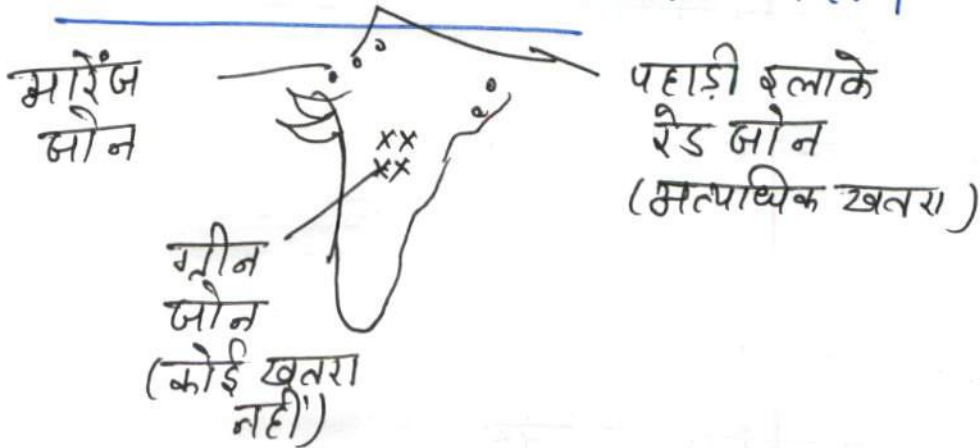 ऑरेंज
जोन
पहाड़ी इलाके
रेड जोन
(अत्याधिक खतरा)
ग्रीन
जोन
(कोई खतरा
नहीं)